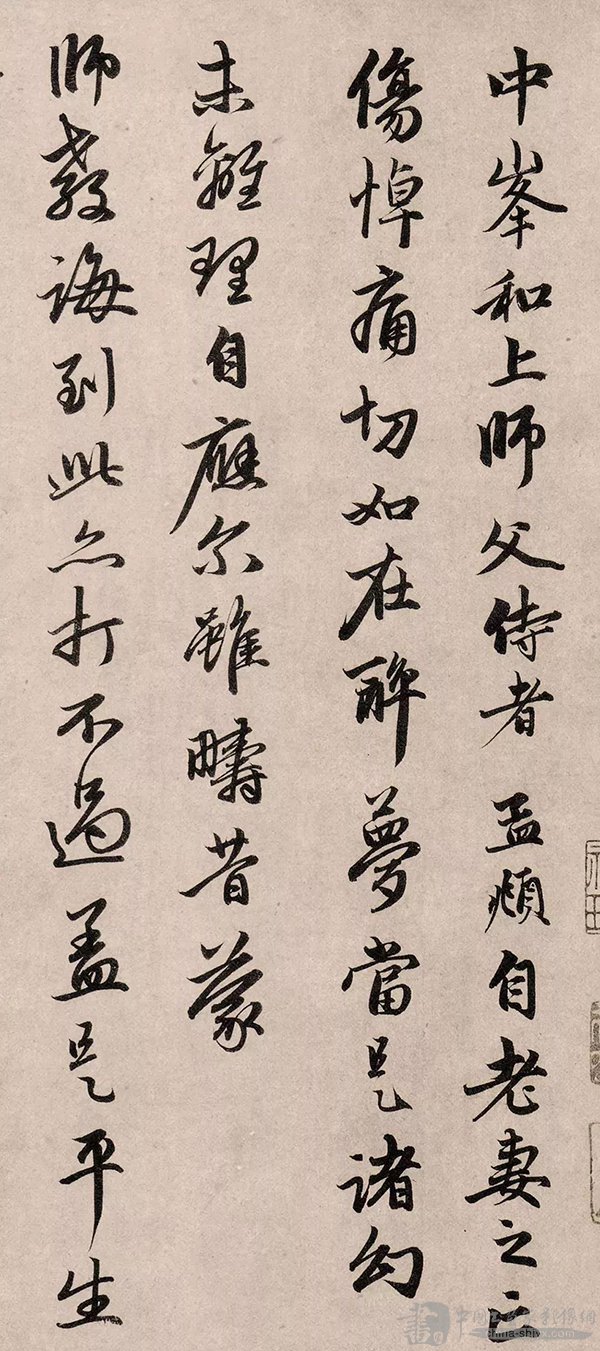 中峯和上師父侍者 孟頫自老妻之亡
傷悼痛切如在醉夢當是諸幻
未離理自應尔雖疇昔蒙
師教誨到此亦打不過盖是平生
china-shjw.com